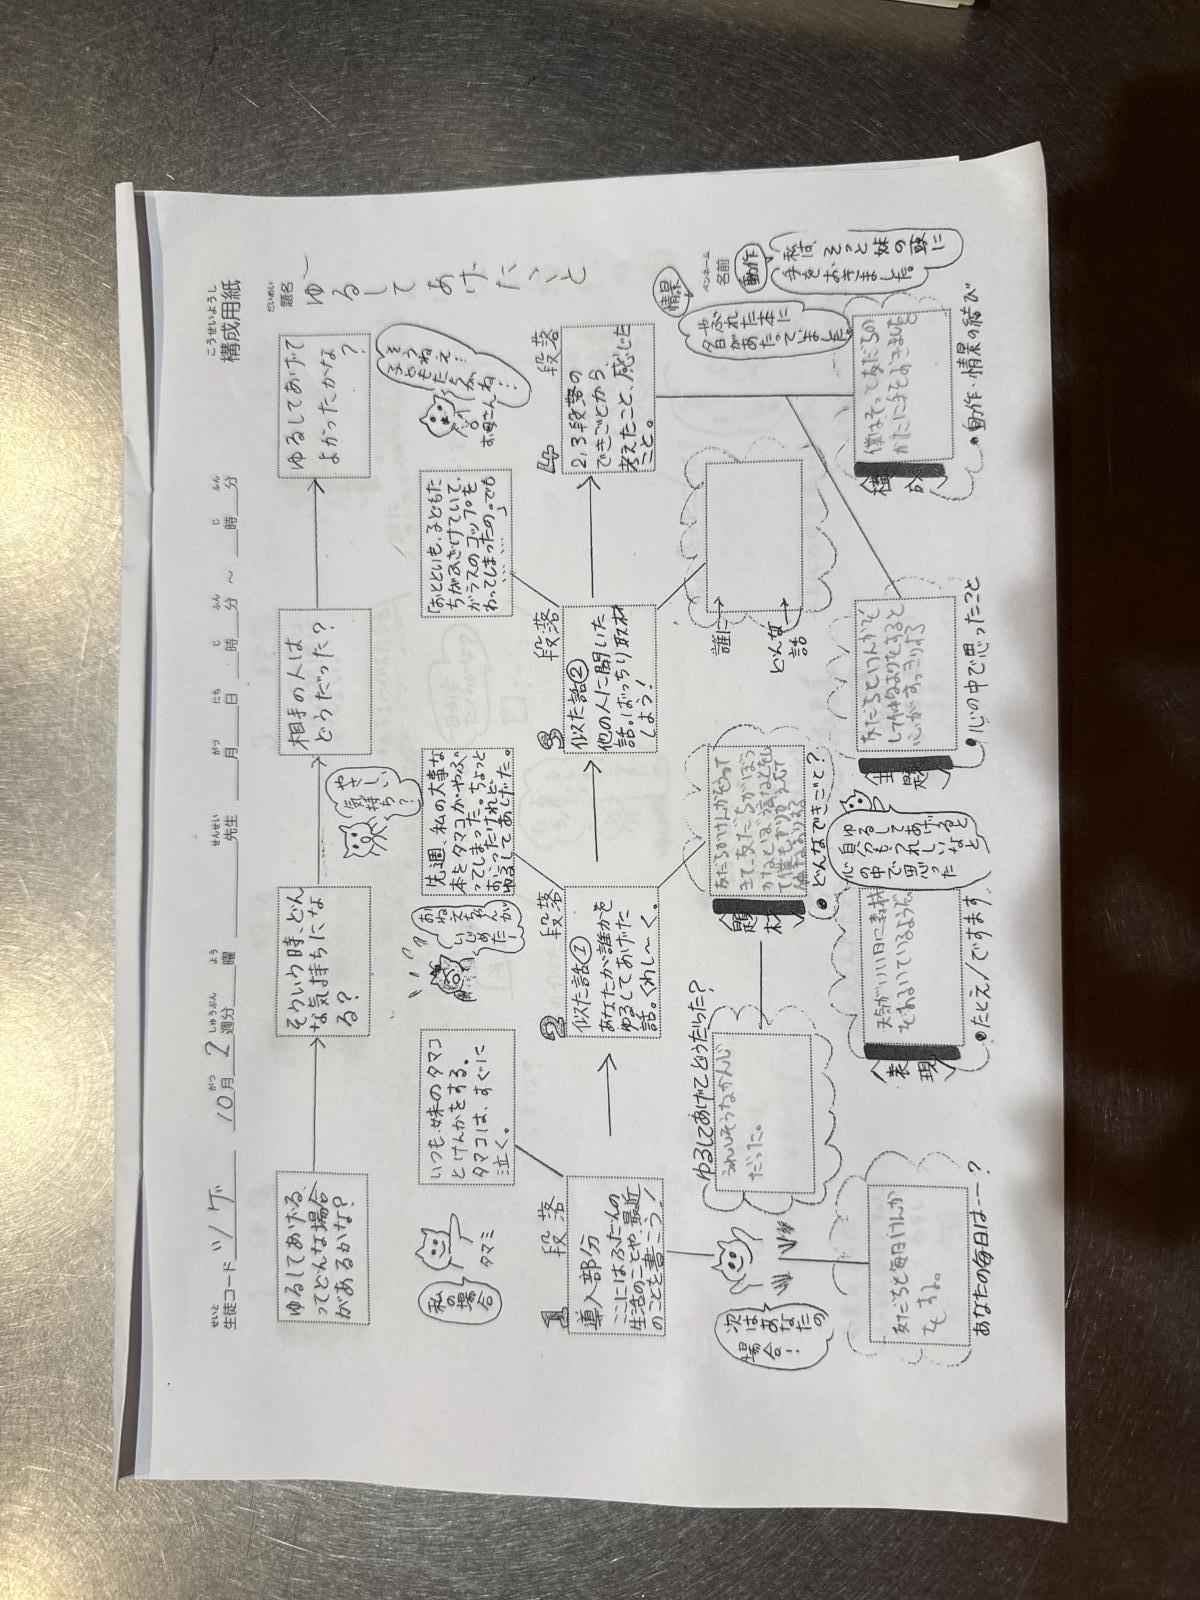 こうせいようし
構成用紙
せいと
生徒コード ツゲ
がつ
10月
しゅうぶん
2週分
よう
曜
せんせい
先生
がつ
月
にち
日
じ
時
ふん
分
～
じ
時
ふん
分
だいめい
題名
ゆ～
るして
あげたいこと
ペンネーム
名前
ゆるしてあげる、
ってどんな場合
があるかな?
そういう時、どん
な気持ちにな
る?
相手の人は
どうだった?
ゆるしてあげて
よかったかな
?
私の
場合
タマミ
いつも、妹のタマコ
とけんかをする。
タマコは、すぐに
泣く。
やさしい
気持ち?
先週、私の大事な
本をタマコがやぶ
ってしまった。ちょっと
ゆるしてあげた。
「おとといも、子どもた
ちがふざけていて、
ガラスのコップを
わってしまったの。でも
………」
お母さんね…
1
段落
導入部分
ここにはふだんの
生活のことや最近
のことを書こう!
2
段落
似た話①
あなたが誰かを
ゆるしてあげた
話。くわし～く。
3
段落
似た話②
他の人に聞いた
話。ばっちり取材
しよう!
4
段落
2,3段落の
できごとから、
考えたこと、感じた
こと。
次は
あなたの
場合!
ゆるしてあげてどうだった?
うれしそうなかんじ
だった。
題材
どんなできごと?
誰に→
どんな話→
情景
やぶれた本に
夕日が
あたっていました。
動作
私は、そっと妹の頭に
手をおきました。
友だちと毎日けんか
をするよ。
あなたの毎日は…?
表現
天気がいい日に
たとえ/ですます
心の中で思ったなど
主題
友だちといんかを
して仲なおりをすると
心がすっきりする
心の中で思ったこと
僕はそっと友だちの
かたに手をおきました
動作・情景の結び